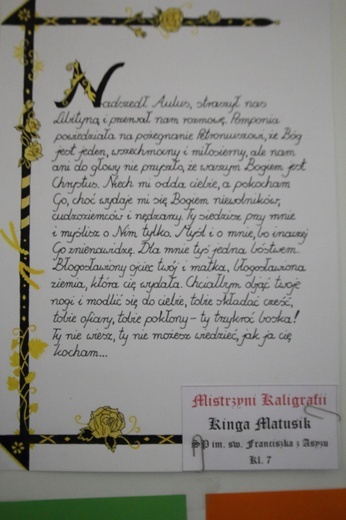 Nadszedł Aulus, straszył nas
Libityną i przerwał nam rozmowę. Pomponia
powiedziała na pożegnanie Petroniuszowi, że Bóg
jest jeden, wszechmocny i miłosierny, ale nam
ani do głowy nie przyszło, że waszym Bogiem jest
Chrystus. Niech mi odda ciebie, a pokocham
Go, choć wydaje mi się Bogiem niewolników,
cudzoziemców i nędzarzy. Ty siedzisz przy mnie
i myślisz o Nim tylko. Myśl i o mnie, bo inaczej
Go znienawidzę. Dla mnie tyś jedna bóstwem.
Błogosławiony ojciec twój i matka, błogosławiona
ziemia, która cię wydała. Chciałbym objąć twoje
nogi i modlić się do ciebie, tobie składać cześć,
tobie ofiary, tobie pokłony - ty trzykroć boska!
Ty nie wiesz, ty nie możesz wiedzieć, jak ja cię
kocham...
Mistrzyni Kaligrafii
Kinga Matusik
SP im. św. Franciszka z Asyżu
Kl. 7